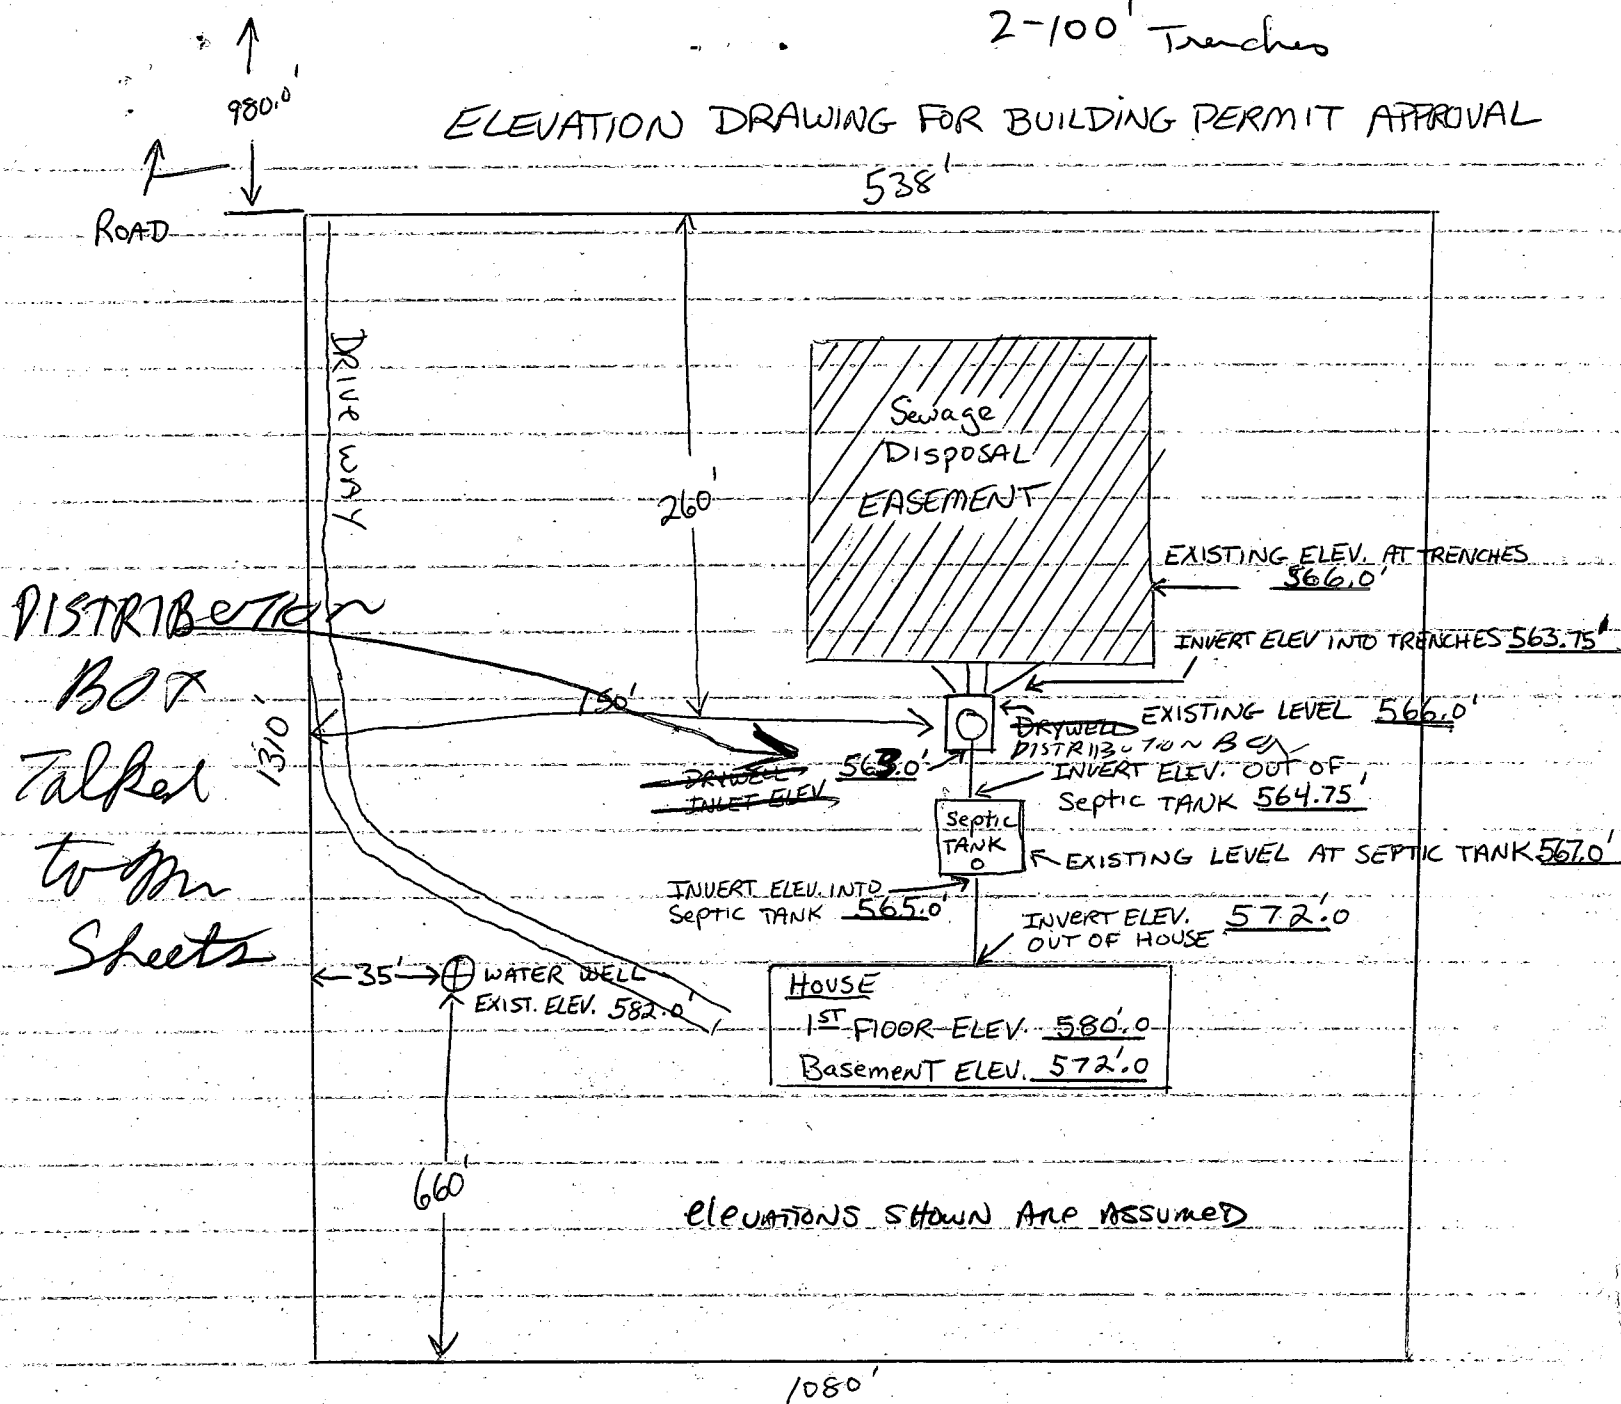 2-100' Trenches
980.0'
ELEVATION DRAWING FOR BUILDING PERMIT APPROVAL
538'
ROAD
DRIVE WAY
Sewage
DISPOSAL
EASEMENT
260'
EXISTING ELEV. AT TRENCHES
566.0'
DISTRIBUTION
BOX
Talked
to
Sheets
INVERT ELEV INTO TRENCHES 563.75'
150'
1310'
DRYWELL EXISTING LEVEL 566.0'
DISTRIBUTION BOX
DRYWELL 563.0'
INLET ELEV
INVERT ELEV. OUT OF
Septic TANK 564.75'
Septic
TANK
EXISTING LEVEL AT SEPTIC TANK 567.0'
INVERT ELEV. INTO
Septic TANK 565.0'
INVERT ELEV. 572'.0
OUT OF HOUSE
35' WATER WELL
EXIST. ELEV. 582.0'
HOUSE
1ST FLOOR ELEV. 580'.0
Basement ELEV. 572'.0
660'
elevATIONS SHOWN ARe ASSUMeD
1080'